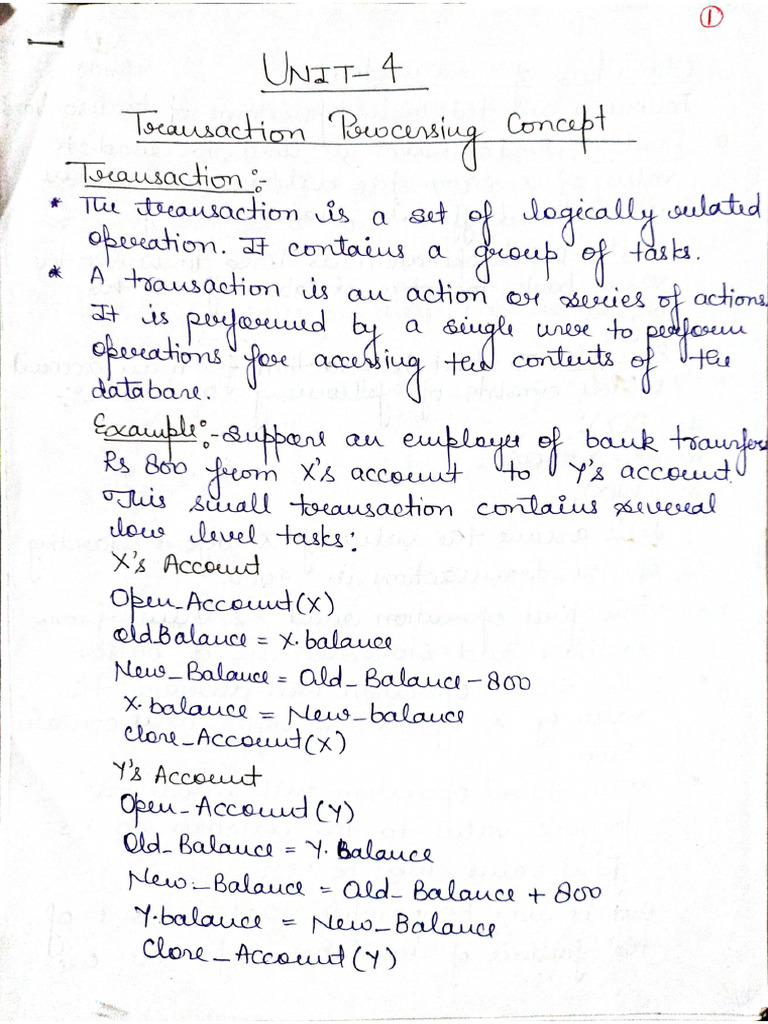 1
UNIT-4
Transaction Processing Concept
Transaction:-
* The transaction is a set of logically related
operation. It contains a group of tasks.
* A transaction is an action or series of actions.
It is performed by a single user to perform
operations for accessing the contents of the
database.
Example:- Suppose an employee of bank transfers
Rs 800 from X's account to Y's account.
This small transaction contains several
low level tasks:
X's Account
Open_Account(X)
Old Balance = X.balance
New_Balance = Old_Balance - 800
X.balance = New_balance
Close_Account(X)
Y's Account
Open_Account(Y)
Old_Balance = Y.Balance
New_Balance = Old_Balance + 800
Y.balance = New_Balance
Close_Account(Y)